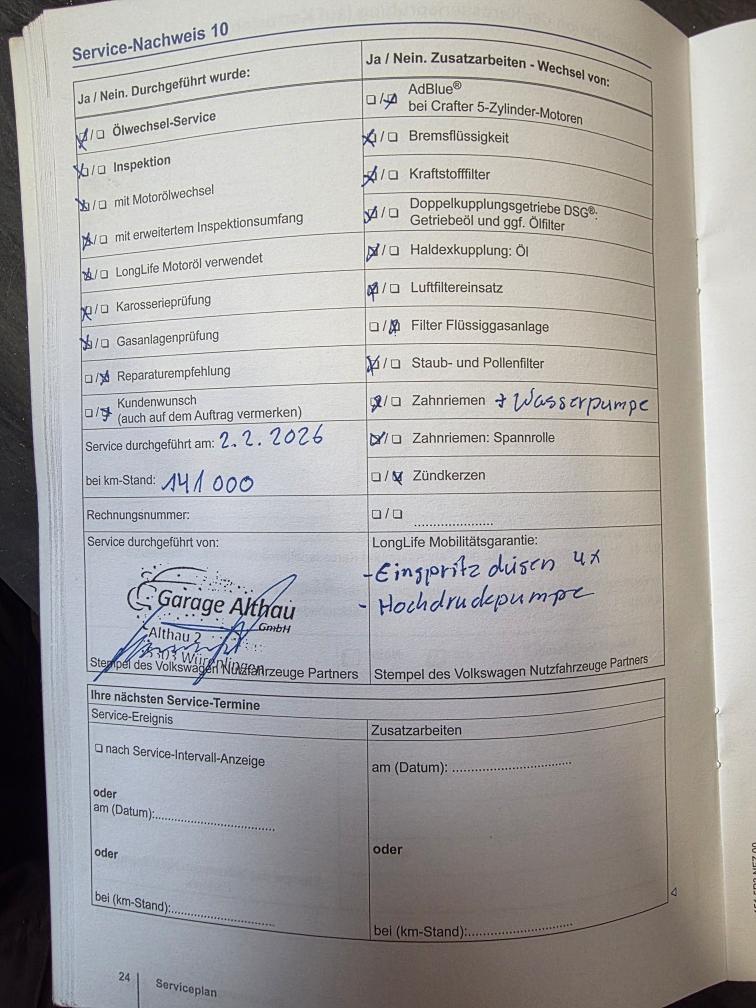 Service-Nachweis 10
Ja / Nein. Durchgeführt wurde:
☒/☐ Ölwechsel-Service
☒/☐ Inspektion
☒/☐ mit Motorölwechsel
☒/☐ mit erweitertem Inspektionsumfang
☒/☐ LongLife Motoröl verwendet
☒/☐ Karosserieprüfung
☒/☐ Gasanlagenprüfung
☐/☒ Reparaturempfehlung
☐/☒ Kundenwunsch
(auch auf dem Auftrag vermerken)
Service durchgeführt am: 2.2.2026
bei km-Stand: 141000
Rechnungsnummer:
Service durchgeführt von:
Garage Althau
GmbH
Althau 2
Würenlingen
Stempel des Volkswagen Nutzfahrzeuge Partners
Ja / Nein. Zusatzarbeiten - Wechsel von:
☐/☒ AdBlue®
bei Crafter 5-Zylinder-Motoren
☒/☐ Bremsflüssigkeit
☒/☐ Kraftstofffilter
☒/☐ Doppelkupplungsgetriebe DSG®:
Getriebeöl und ggf. Ölfilter
☒/☐ Haldexkupplung: Öl
☒/☐ Luftfiltereinsatz
☐/☒ Filter Flüssiggasanlage
☒/☐ Staub- und Pollenfilter
☒/☐ Zahnriemen + Wasserpumpe
☒/☐ Zahnriemen: Spannrolle
☐/☒ Zündkerzen
☐/☐ ......................
LongLife Mobilitätsgarantie:
- Einspritzdüsen 4x
- Hochdruckpumpe
Stempel des Volkswagen Nutzfahrzeuge Partners
Ihre nächsten Service-Termine
Service-Ereignis
☐ nach Service-Intervall-Anzeige
oder
am (Datum):..............................
oder
bei (km-Stand):..........................
Zusatzarbeiten
am (Datum): ..............................
oder
bei (km-Stand):..........................
24
Serviceplan